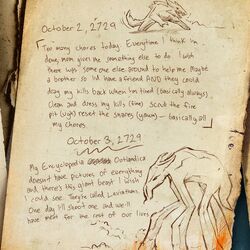 October 2, 2729
Too many chores today. Everytime I think I'm
done, mom gives me something else to do. I wish
there was some one else around to help me. Maybe
a brother so I'd have a friend AND they could
drag my kills back when I'm tired (basically always)
Clean and dress my kills (fine) Scrub the fire
pit (ugh) reset the snares (yawn) - basically all
my chores.
October 3, 2729
My Encyclopedia Outlandica
doesn't have pictures of everything
and there's this giant beast I wish I
could see. They're called Leviathans.
One day I'll shoot one and we'll
have meat for the rest of our lives